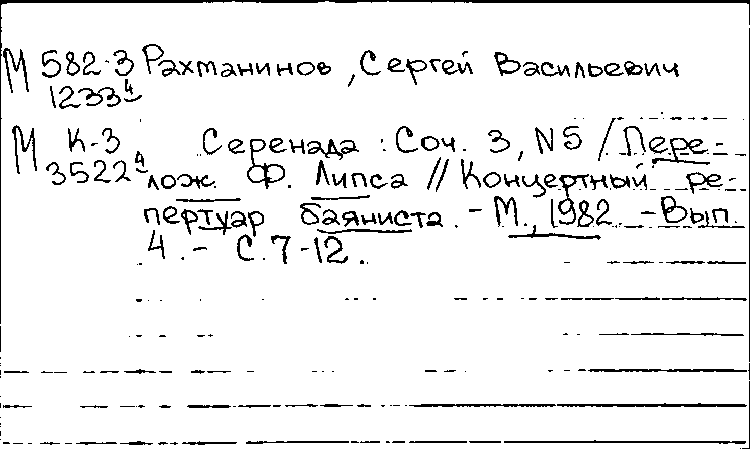 М 582-3 Рахманинов, Сергей Васильевич
1233⁴
М К-3 Серенада : Соч. 3, N5 / Пере-
3522⁴ лож. Ф. Липса // Концертный ре-
пертуар баяниста. - М., 1982. - Вып.
4. - С. 7-12.